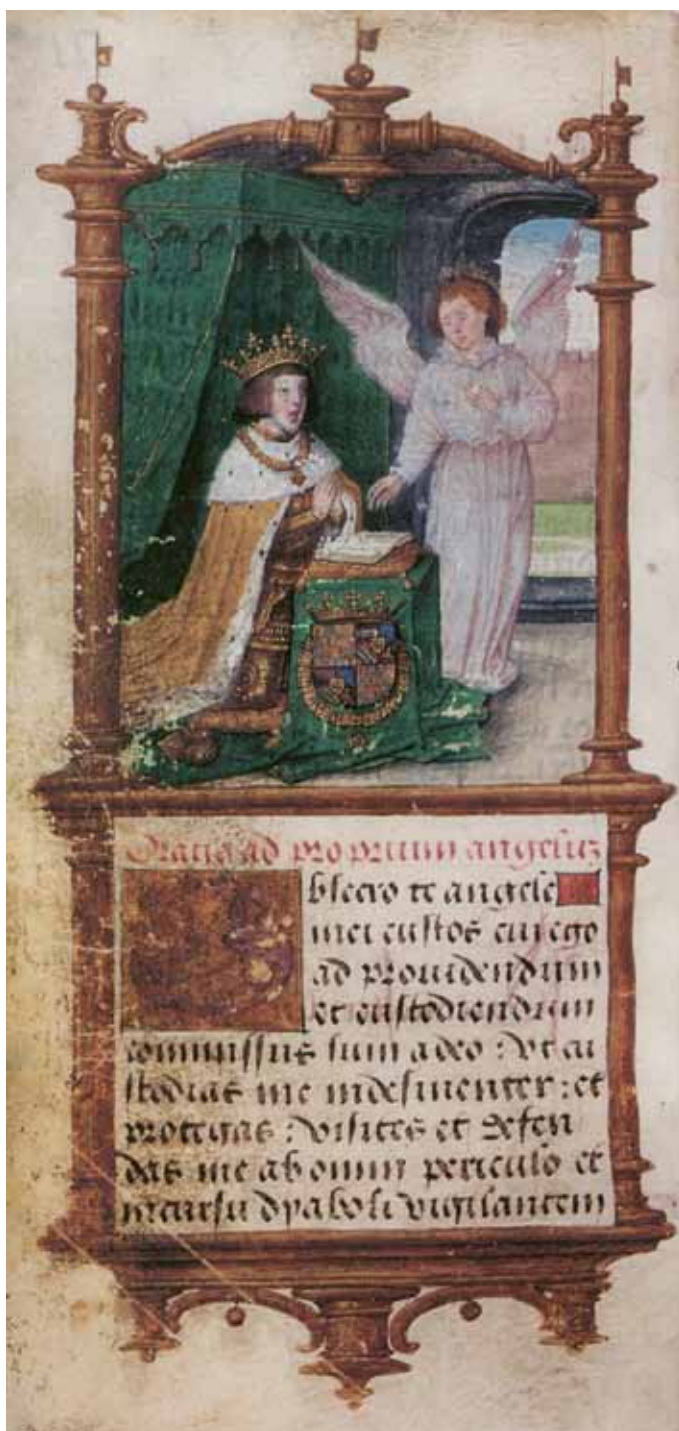 Oratio ad proprium angeluz
bsecro te angele
mei custos cui ego
ad prouidendum
et custodiendum
commissus sum a deo : vt cu
stodias me indesinenter : et
protegas : visites et defen
das me ab omni periculo et
incursu dyaboli vigilantem